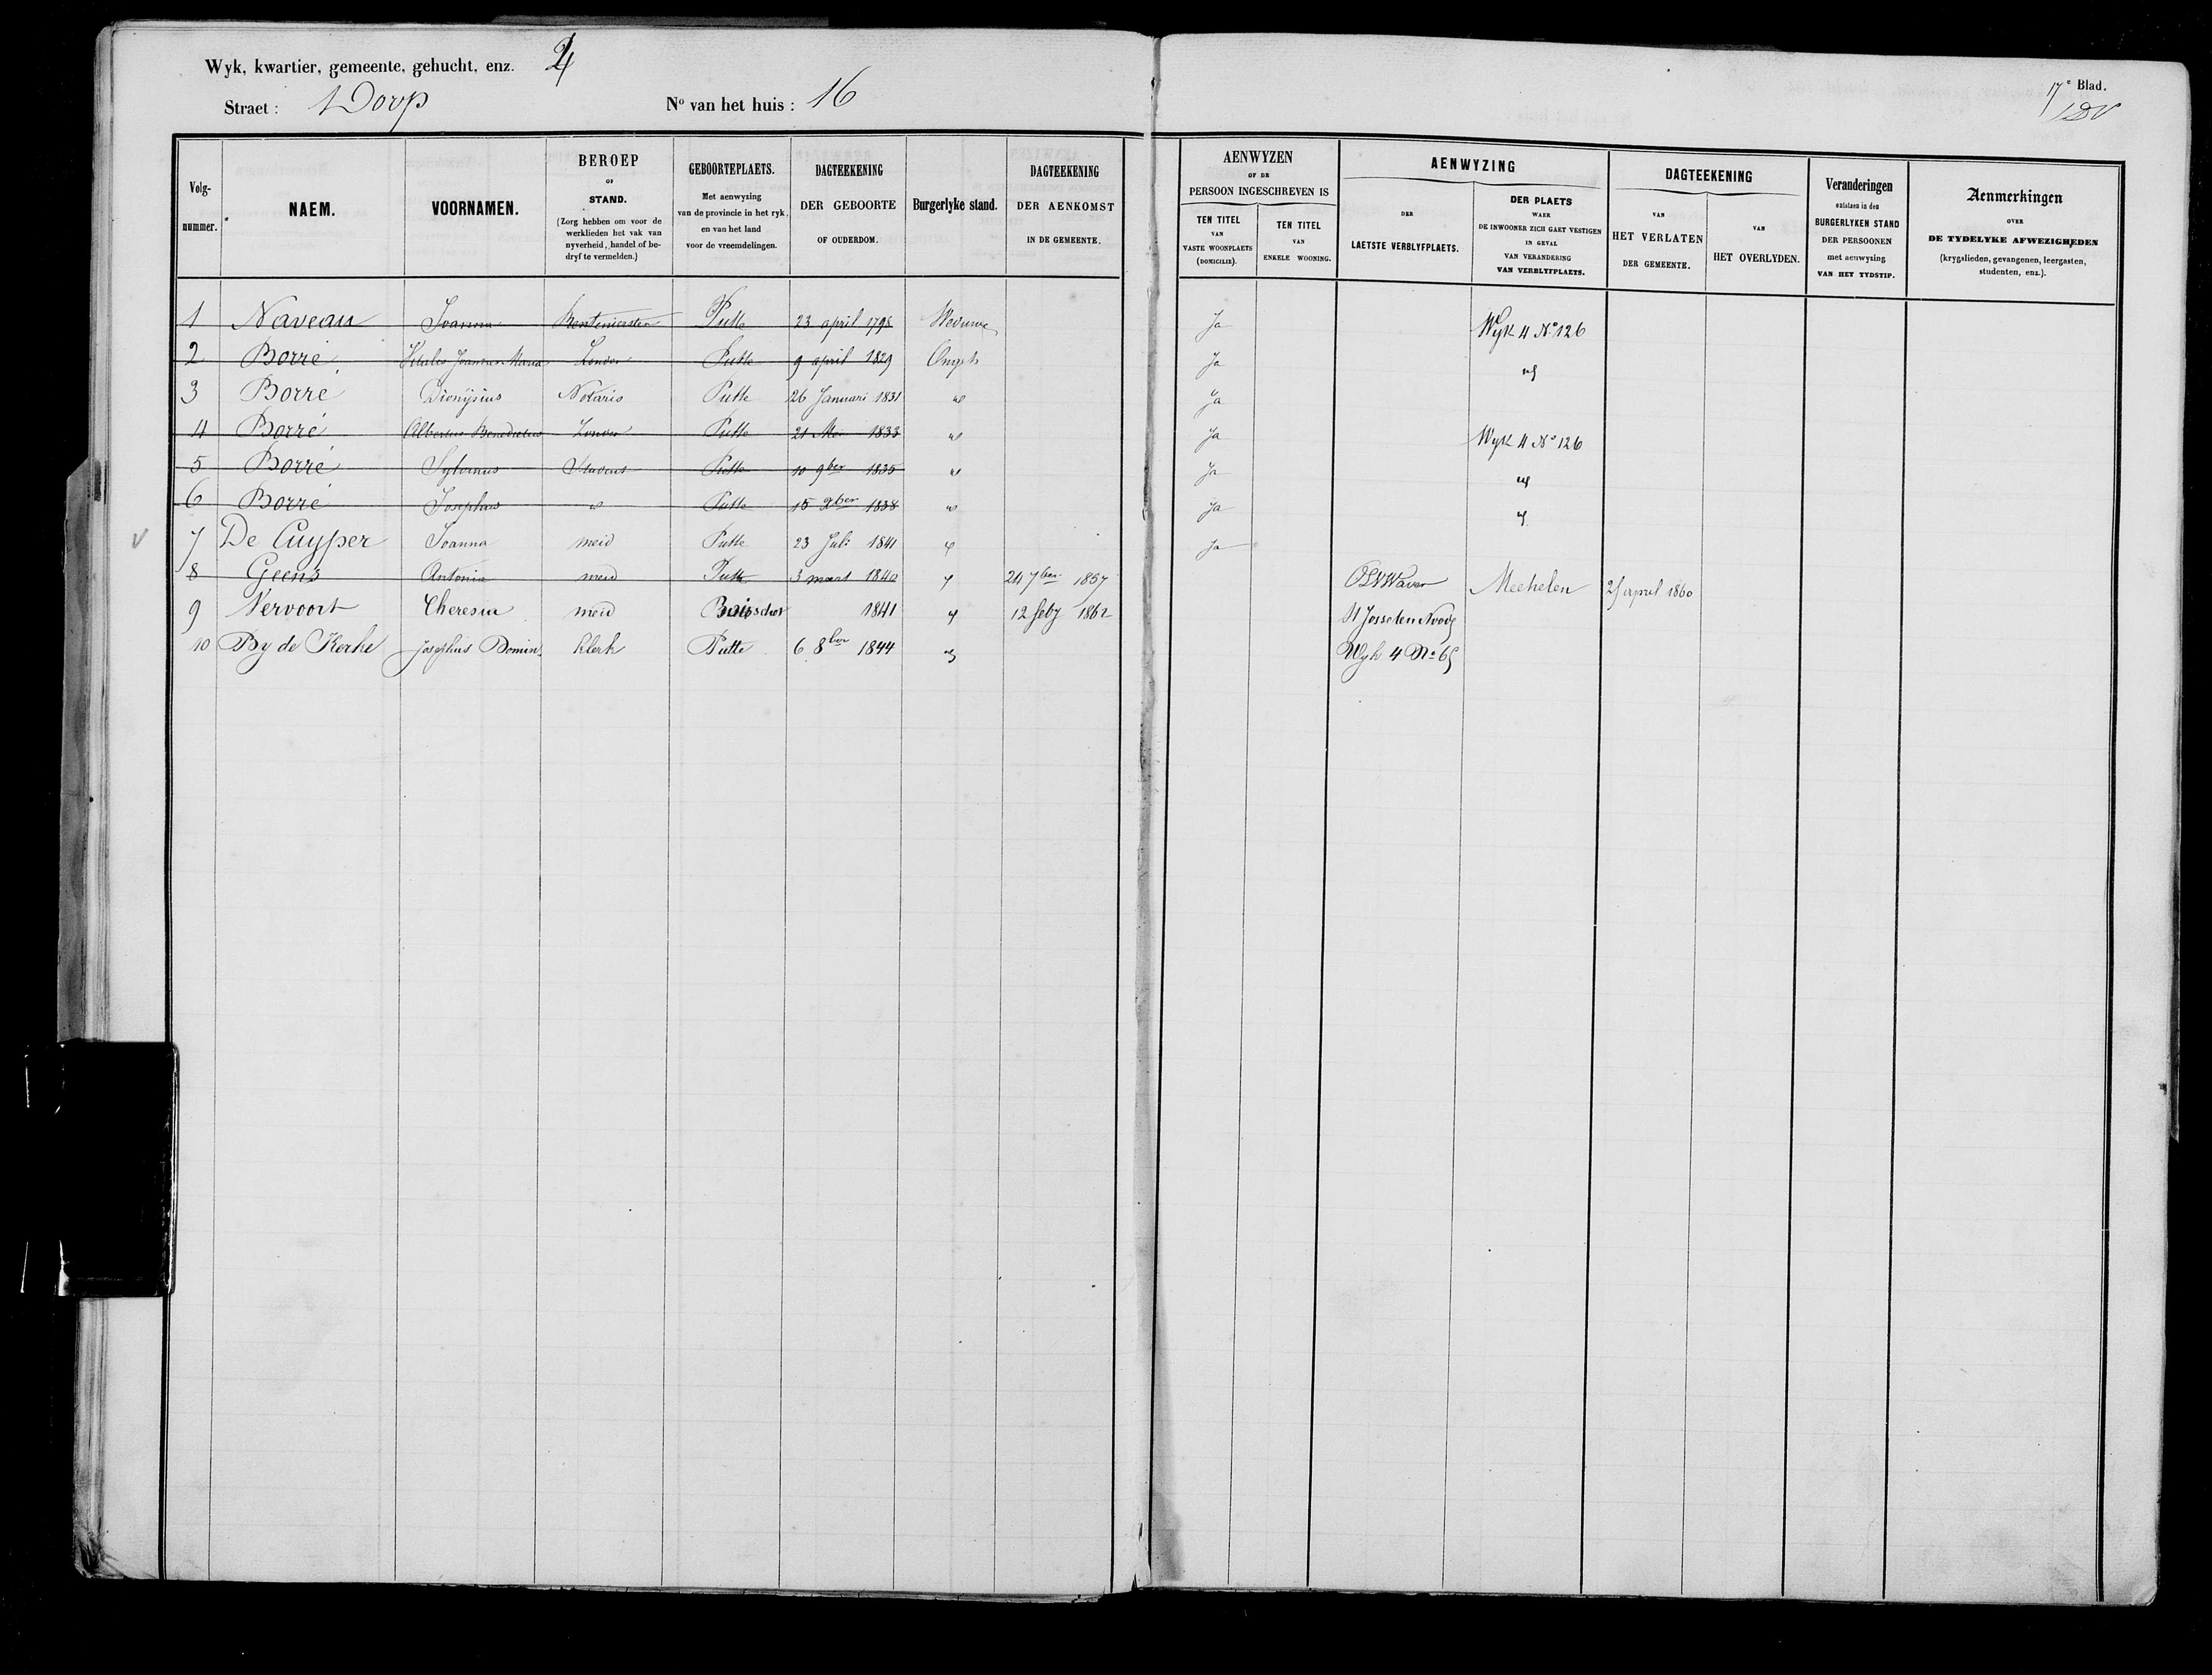 Wyk, kwartier, gemeente, gehucht, enz. 4
Straet : Dorp No van het huis : 16
17e Blad.
Volg-nummer.
NAEM.
VOORNAMEN.
BEROEP
OF
STAND.
(Zorg hebben om voor de
werklieden het vak van
nyverheid, handel of be-
dryf te vermelden.)
GEBOORTEPLAETS.
Met aenwyzing
van de provincie in het ryk,
en van het land
voor de vreemdelingen.
DAGTEEKENING
DER GEBOORTE
OF OUDERDOM.
Burgerlyke stand.
DAGTEEKENING
DER AENKOMST
IN DE GEMEENTE.
AENWYZEN
OF DE
PERSOON INGESCHREVEN IS
TEN TITEL
VAN
VASTE WOONPLAETS
(DOMICILIE).
TEN TITEL
VAN
ENKELE WOONING.
AENWYZING
DER
LAETSTE VERBLYFPLAETS.
DER PLAETS
WAER
DE INWOONER ZICH GAET VESTIGEN
IN GEVAL
VAN VERANDERING
VAN VERBLYFPLAETS.
DAGTEEKENING
VAN
HET VERLATEN
DER GEMEENTE.
VAN
HET OVERLYDEN.
Veranderingen
ontstaen in den
BURGERLYKEN STAND
DER PERSOONEN
met aenwyzing
VAN HET TYDSTIP.
Aenmerkingen
OVER
DE TYDELYKE AFWEZIGHEDEN
(krygslieden, gevangenen, leergasten,
studenten, enz.).
1 Naveau Joanna Rentenierster Putte 23 april 1798 Weduwe Ja Wyk 4 No 126
2 Borré Joanna Maria Zonder Putte 9 april 1829 Ongeh Ja id
3 Borré Dionijsius Notaris Putte 26 Januari 1831 id Ja
4 Borré Albertus Benedictus Zonder Putte 21 Mei 1833 id Ja Wyk 4 No 126
5 Borré Sylvinus Student Putte 10 9ber 1835 id Ja id
6 Borré Josephus id Putte 15 1838 id Ja id
7 De Cuyper Joanna meid Putte 23 Juli 1841 id Ja
8 Geens Antonia meid Putte 3 maart 1840 id 24 7ber 1857 OLVWaver Mechelen 25 april 1860
9 Vervoort Theresia meid Booisschot 1841 id 12 feby 1862 St Josseten Noode
10 By de Kerke Josephus Domin. klerk Putte 6 8ber 1844 id Wyk 4 No 65